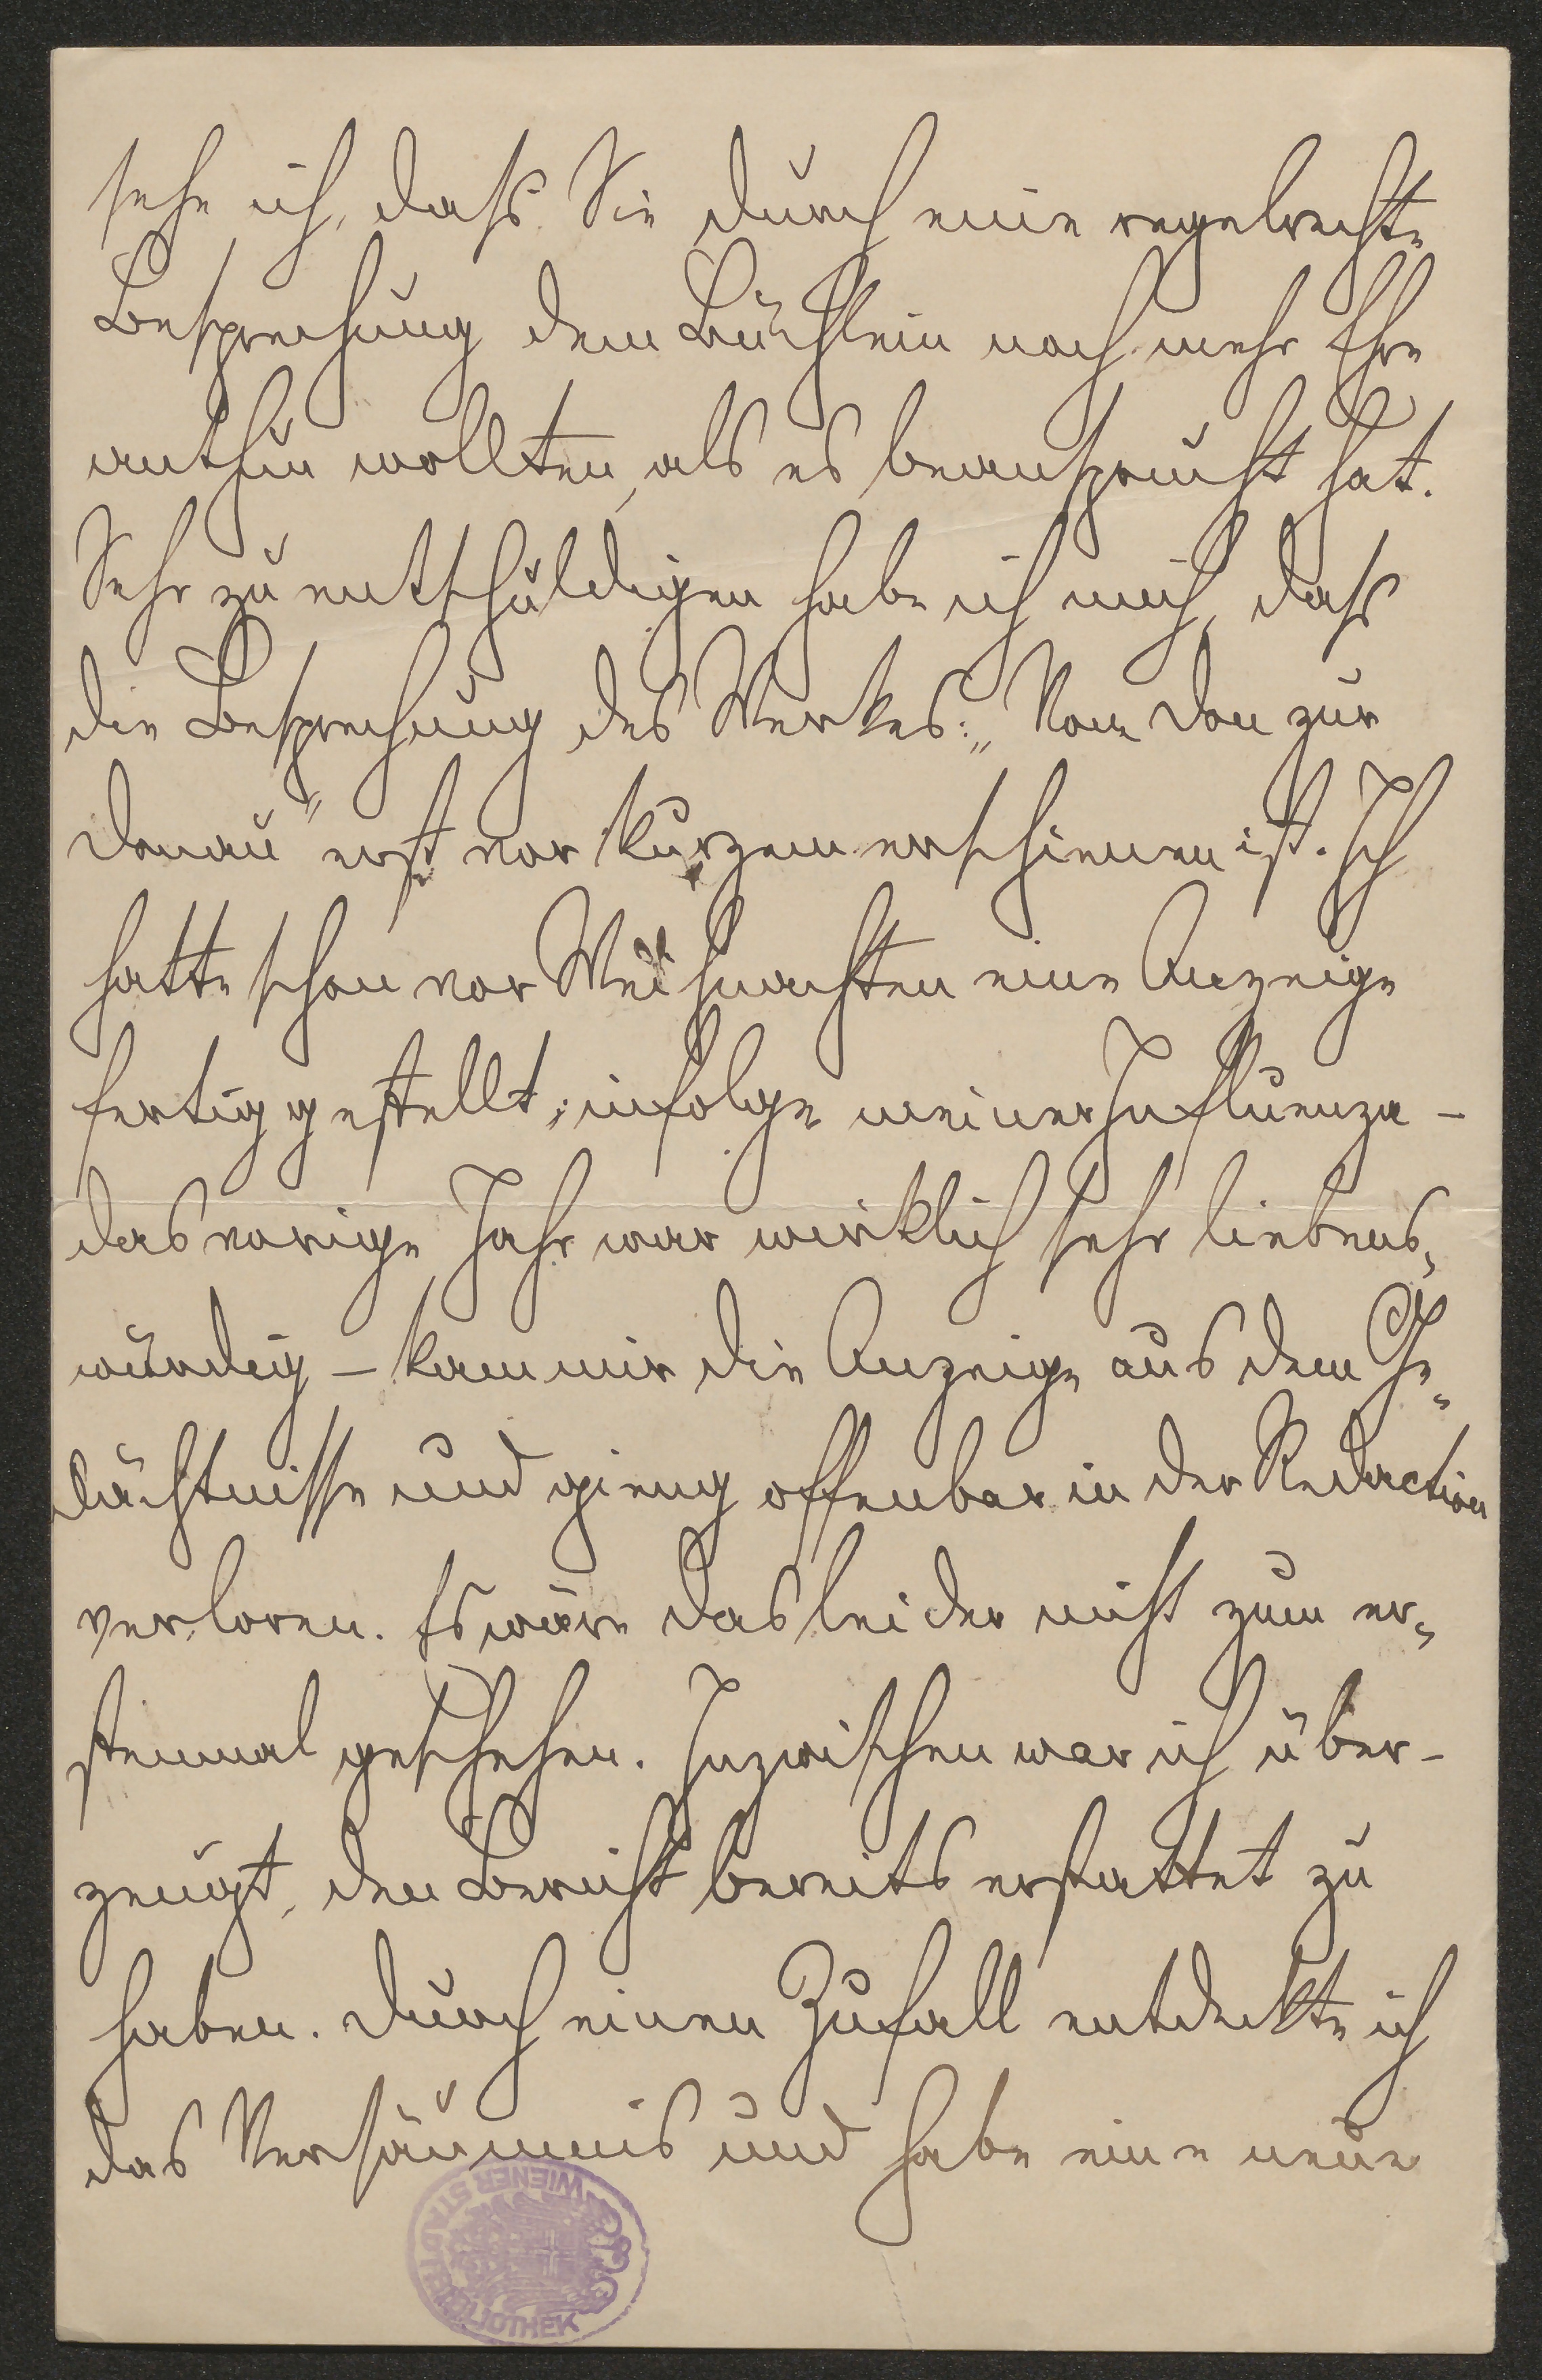 sehe ich, daß Sie durch eine regelrechte
Besprechung dem Büchlein noch mehr Ehre
anthun wollten, als es beansprucht hat.
Sehr zu entschuldigen habe ich mich, daß
die Besprechung des Werkes: „Vom Don zur
Donau" erst vor Kurzem erschienen ist. Ich
hatte schon vor Weihnachten eine Anzeige
fertig gestellt; infolge meiner Influenza –
das vorige Jahr war wirklich sehr liebens„
würdig – kam mir die Anzeige aus dem Ge„
dächtnisse und gieng offenbar in der Redaction
verloren. Es wäre das leider nicht zum er„
stenmal geschehen. Inzwischen war ich über-
zeugt, den Bericht bereits erstattet zu
haben. Durch einen Zufall entdeckte ich
das Versäumnis und habe eine neue
WIENER STADTBIBLIOTHEK